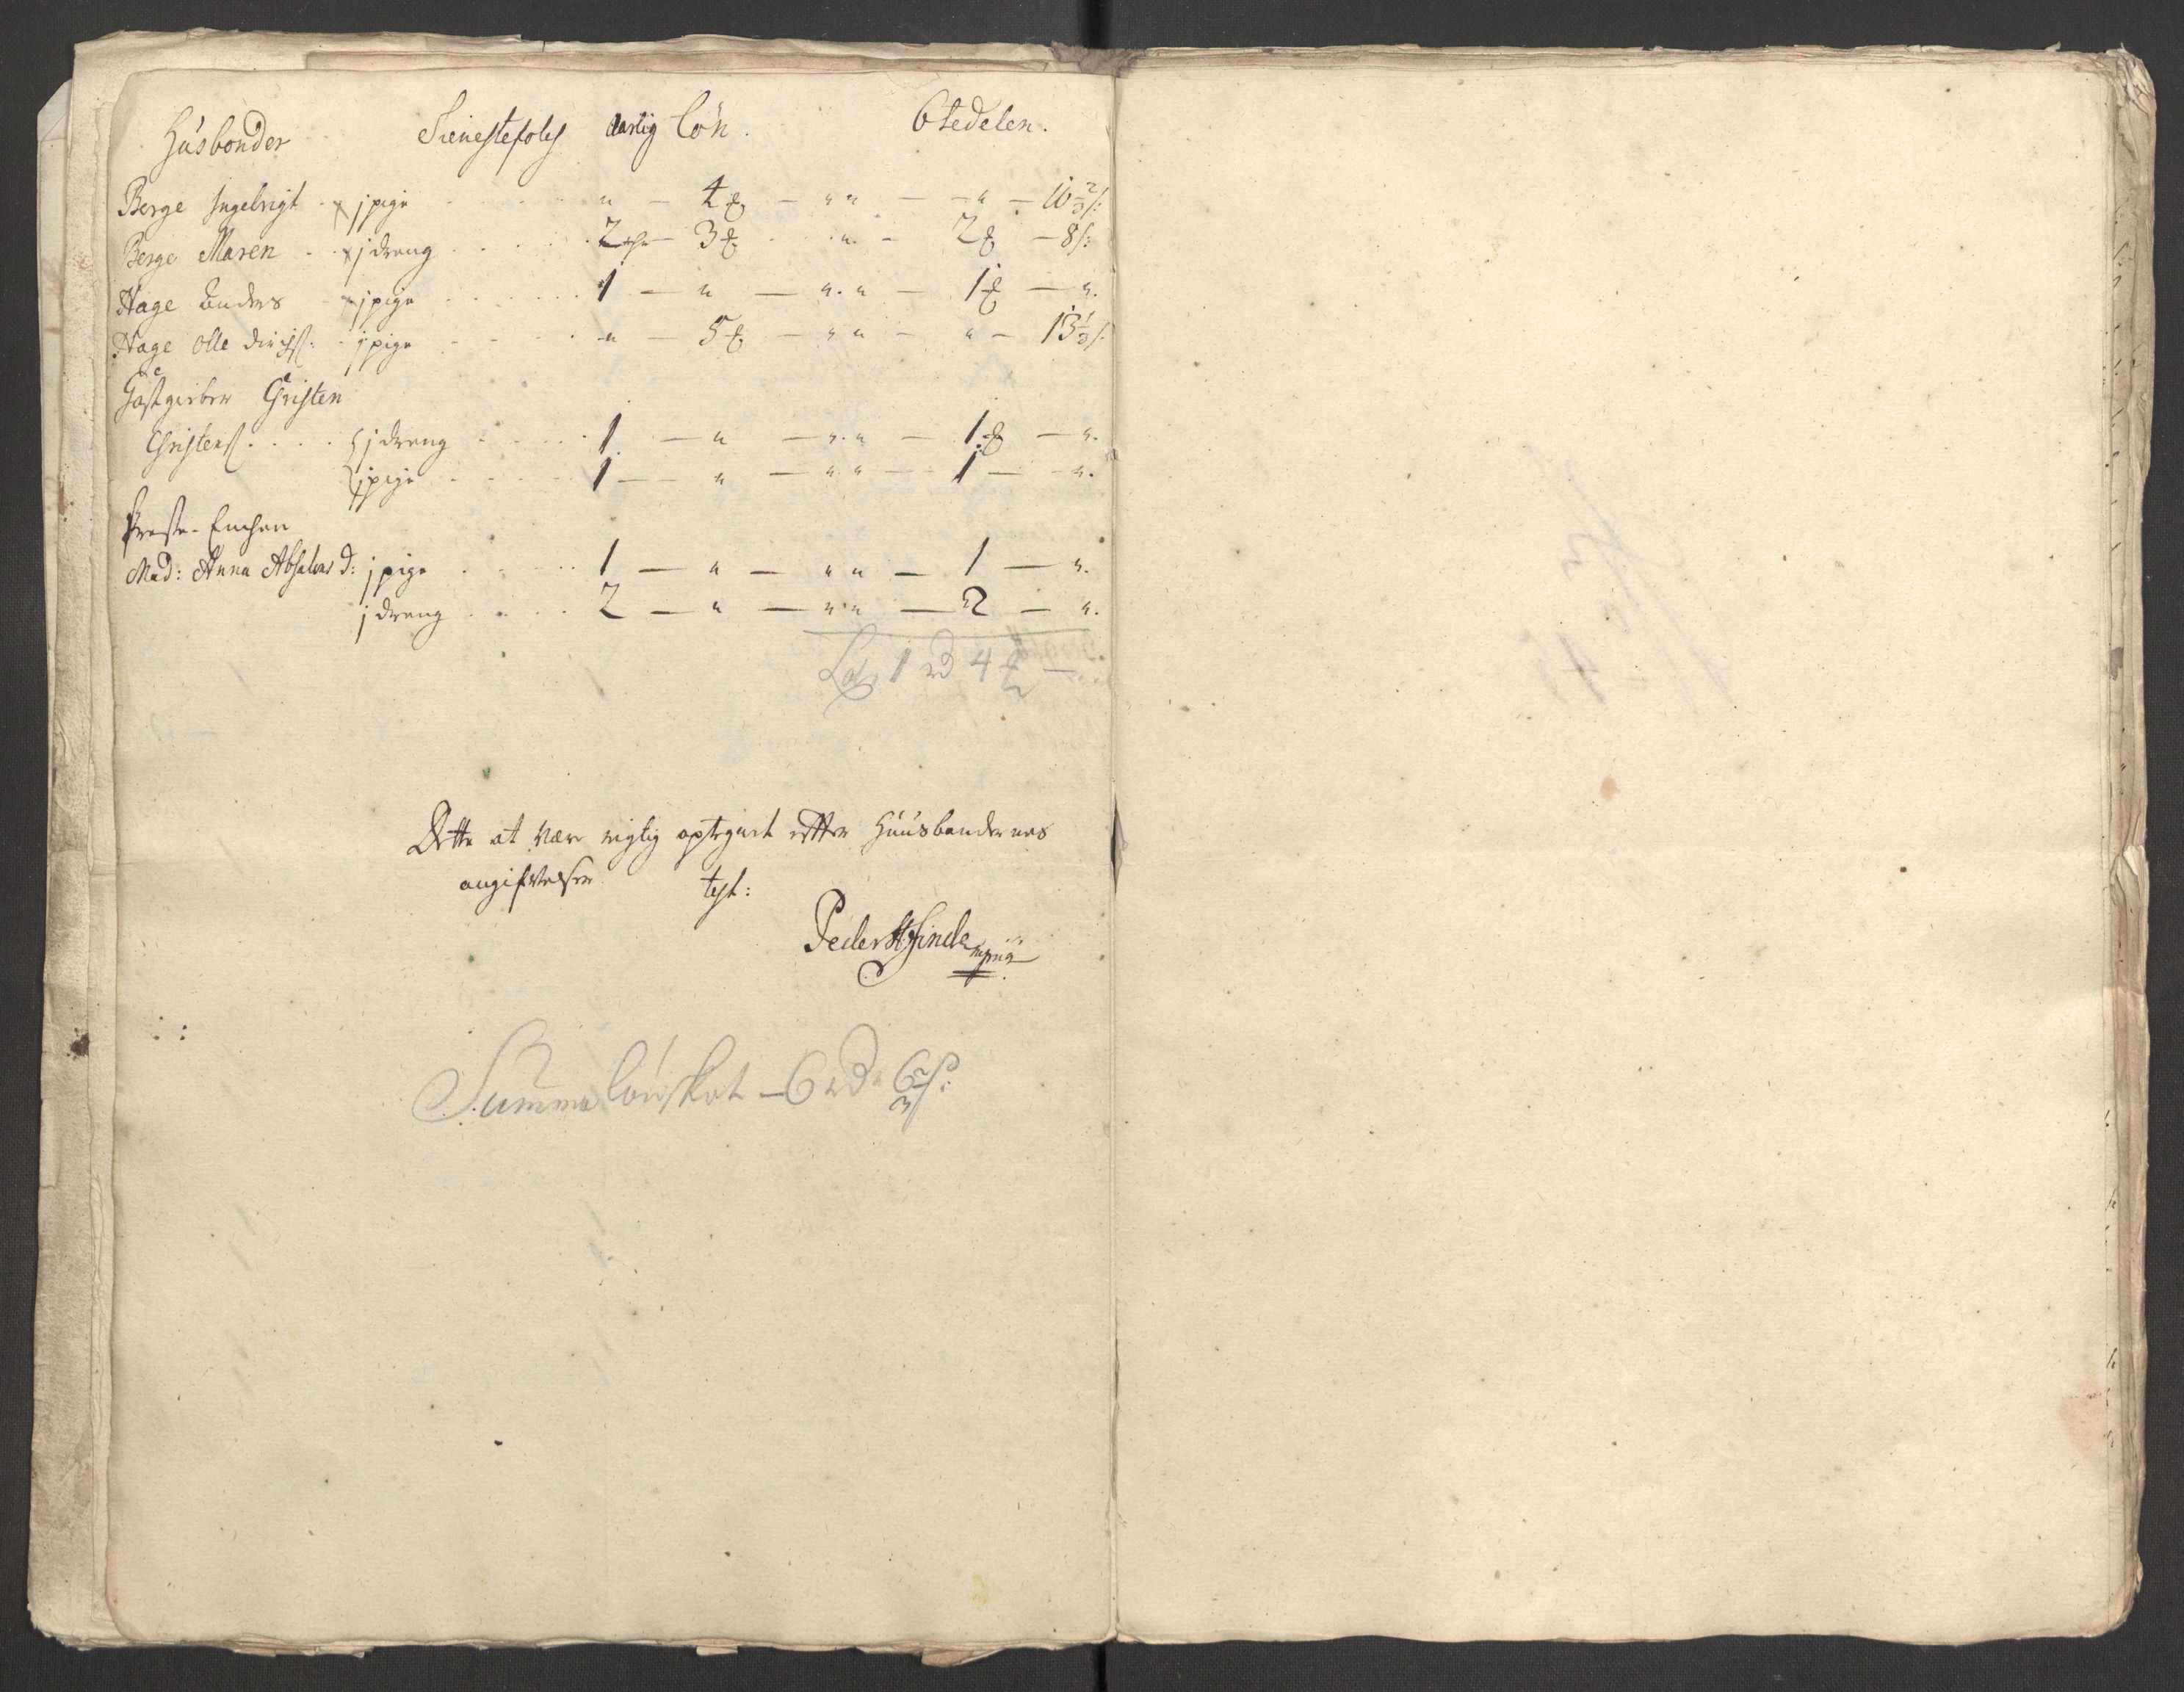 Husbonder Tienestefolch aarlig lön. 6tedelen.
Berge Ingebrigt - j pige - " - 4 ₰ - " " - " - 10 2/3 s:
Berge Maren - j dreng - 2 rdr - 3 ₰ - " - 2 ₰ - 8 s:
Hage Anders - j pige - 1 - " - " " - 1 ₰ - ".
Hage Olle dirichs: - j pige - " - 5 ₰ - " " - " - 13 1/3 s.
Gastgieber Christen
Christens - j dreng - 1 - " - " " - 1 ₰ - ".
j pige - 1 - " - " " - 1 - ".
Preste-Enchen
Mad: Anna Absalons d: j pige - 1 - " - " " - 1 - ".
j dreng - 2 - " - " " - 2 - ".
1 rd 4 ₰ -
Dette at være rigtig optegnet efter Huusbondernes
angifvelse test:
Peder Hinde mpria
Summa lönskat - 6 rd 6 2/3 s: